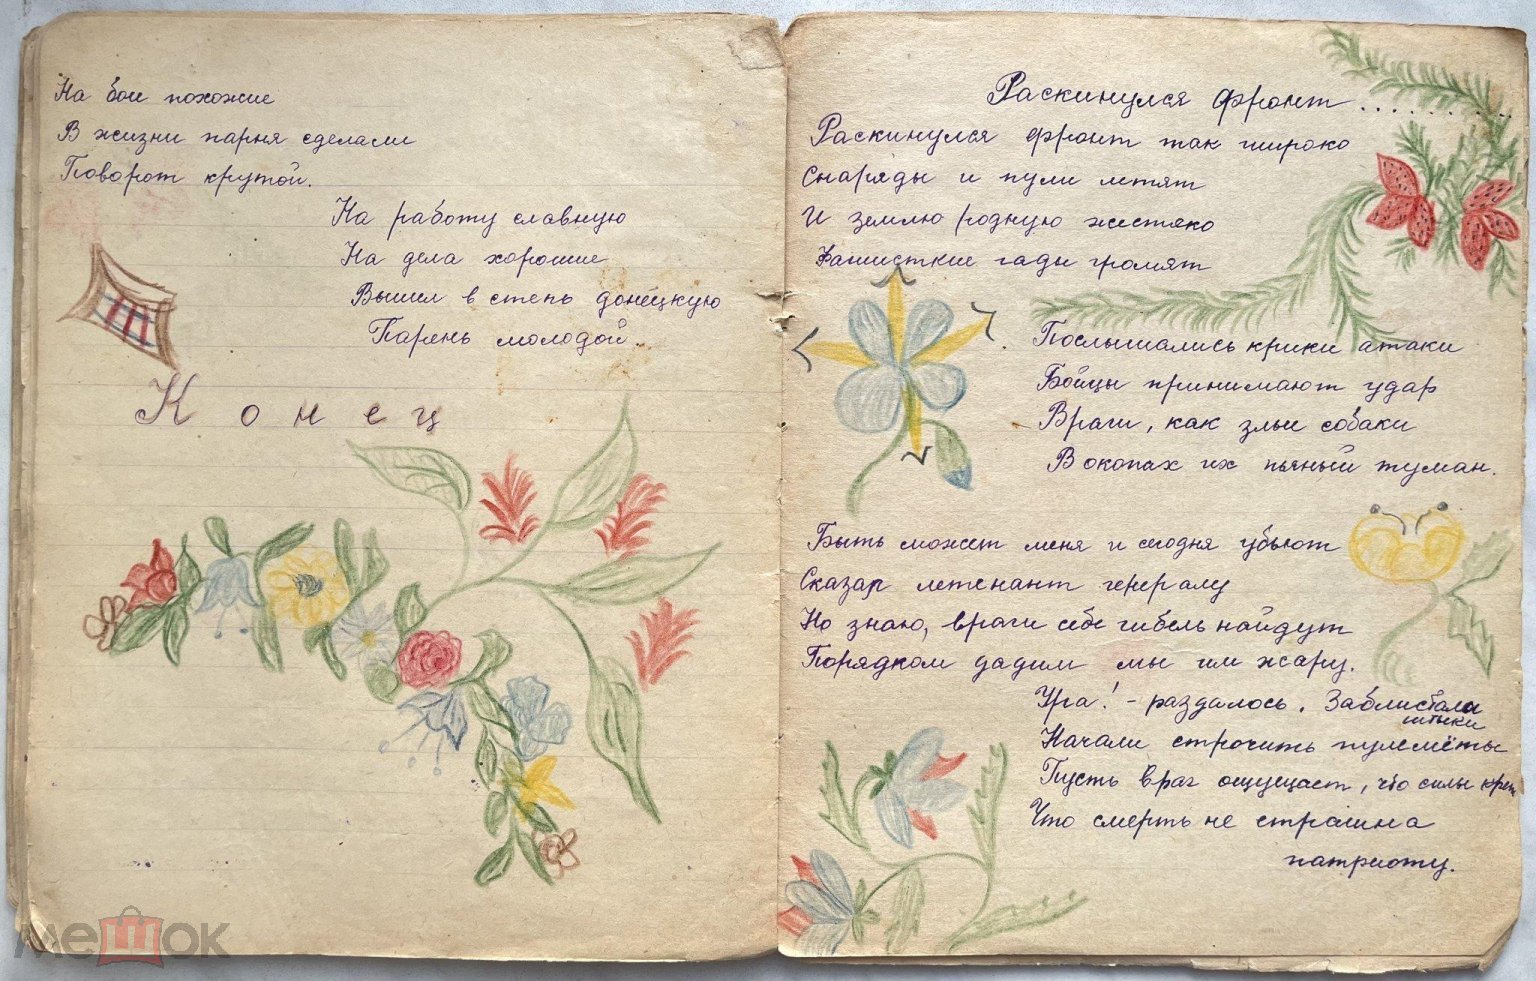 На бои похожие
В жизни парня сделали
Поворот крутой.
На работу славную
На дела хорошие
Вышел в степь донецкую
Парень молодой.
Конец
Раскинулся фронт..........
Раскинулся фронт так широко
Снаряды и пули летят
И землю родную жестяко
Фашисткие гады громят
Послышались крики атаки
Бойцы принимают удар
Враги, как злые собаки
В окопах их пьяный туман.
Быть может меня и сегодня убьют
Сказар летенант генералу
Но знаю, враги себе гибель найдут
Порядком дадим мы им жару.
Ура! - раздалось. Заблистали
штыки
Начали строчить пулемёты
Пусть враг ощущает, что силы креп
Что смерть не страшна
патриоту.
мешок